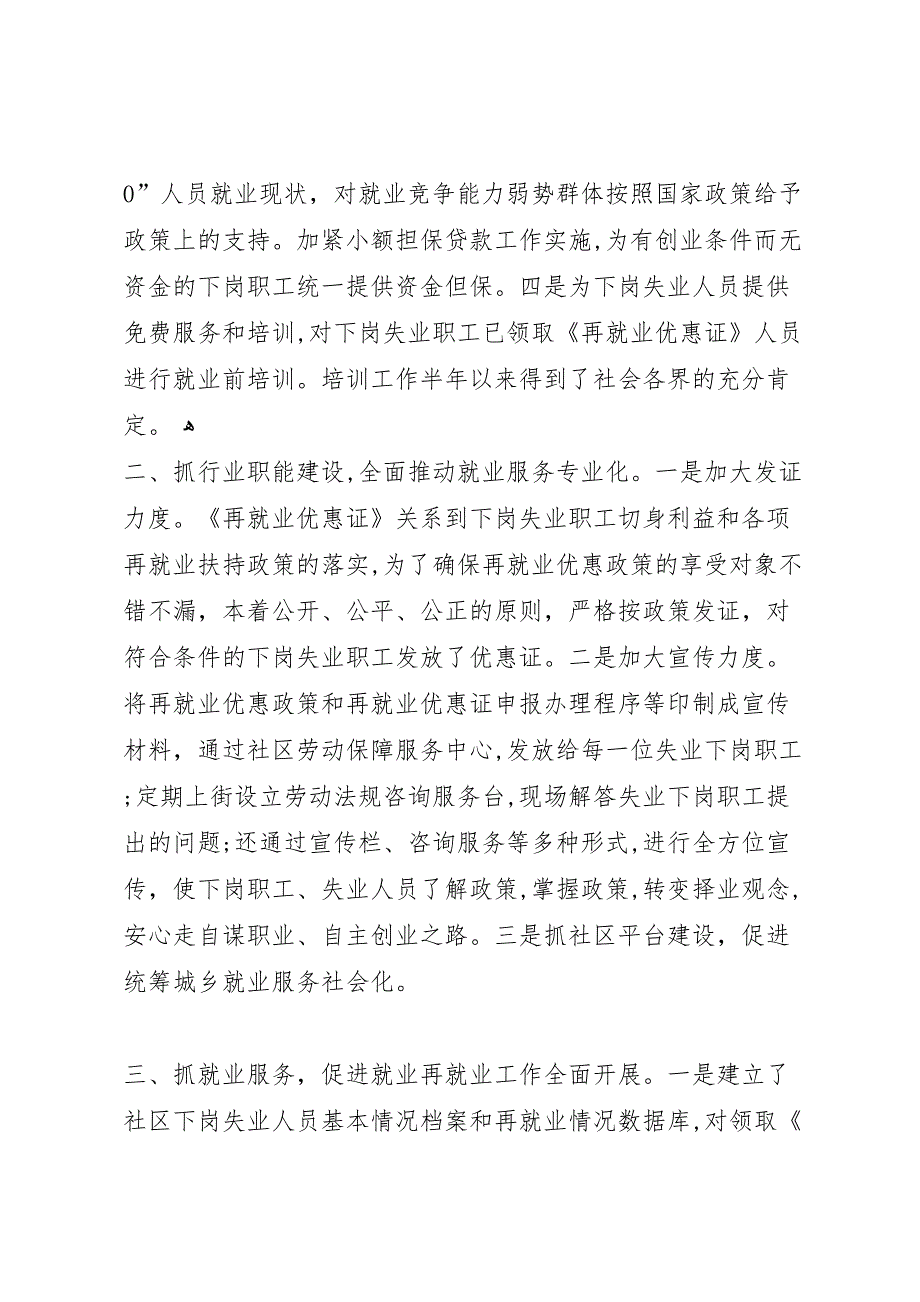 0”人员就业现状，对就业竞争能力弱势群体按照国家政策给予
政策上的支持。加紧小额担保贷款工作实施,为有创业条件而无
资金的下岗职工统一提供资金但保。四是为下岗失业人员提供
免费服务和培训,对下岗失业职工已领取《再就业优惠证》人员
进行就业前培训。培训工作半年以来得到了社会各界的充分肯
定。 ﻫ
二、抓行业职能建设,全面推动就业服务专业化。一是加大发证
力度。《再就业优惠证》关系到下岗失业职工切身利益和各项
再就业扶持政策的落实,为了确保再就业优惠政策的享受对象不
错不漏，本着公开、公平、公正的原则，严格按政策发证，对
符合条件的下岗失业职工发放了优惠证。二是加大宣传力度。
将再就业优惠政策和再就业优惠证申报办理程序等印制成宣传
材料，通过社区劳动保障服务中心,发放给每一位失业下岗职工
;定期上街设立劳动法规咨询服务台,现场解答失业下岗职工提
出的问题;还通过宣传栏、咨询服务等多种形式,进行全方位宣
传，使下岗职工、失业人员了解政策,掌握政策,转变择业观念,
安心走自谋职业、自主创业之路。三是抓社区平台建设，促进
统筹城乡就业服务社会化。
三、抓就业服务，促进就业再就业工作全面开展。一是建立了
社区下岗失业人员基本情况档案和再就业情况数据库,对领取《